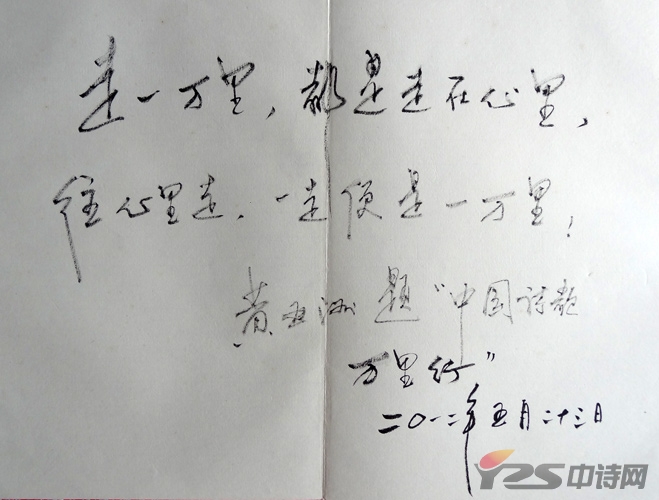 走一万里，都是走在心里，
往心里走，一走便是一万里！
黄亚洲 题“中国诗歌
万里行”
二〇一二年五月二十三日
YZS中诗网